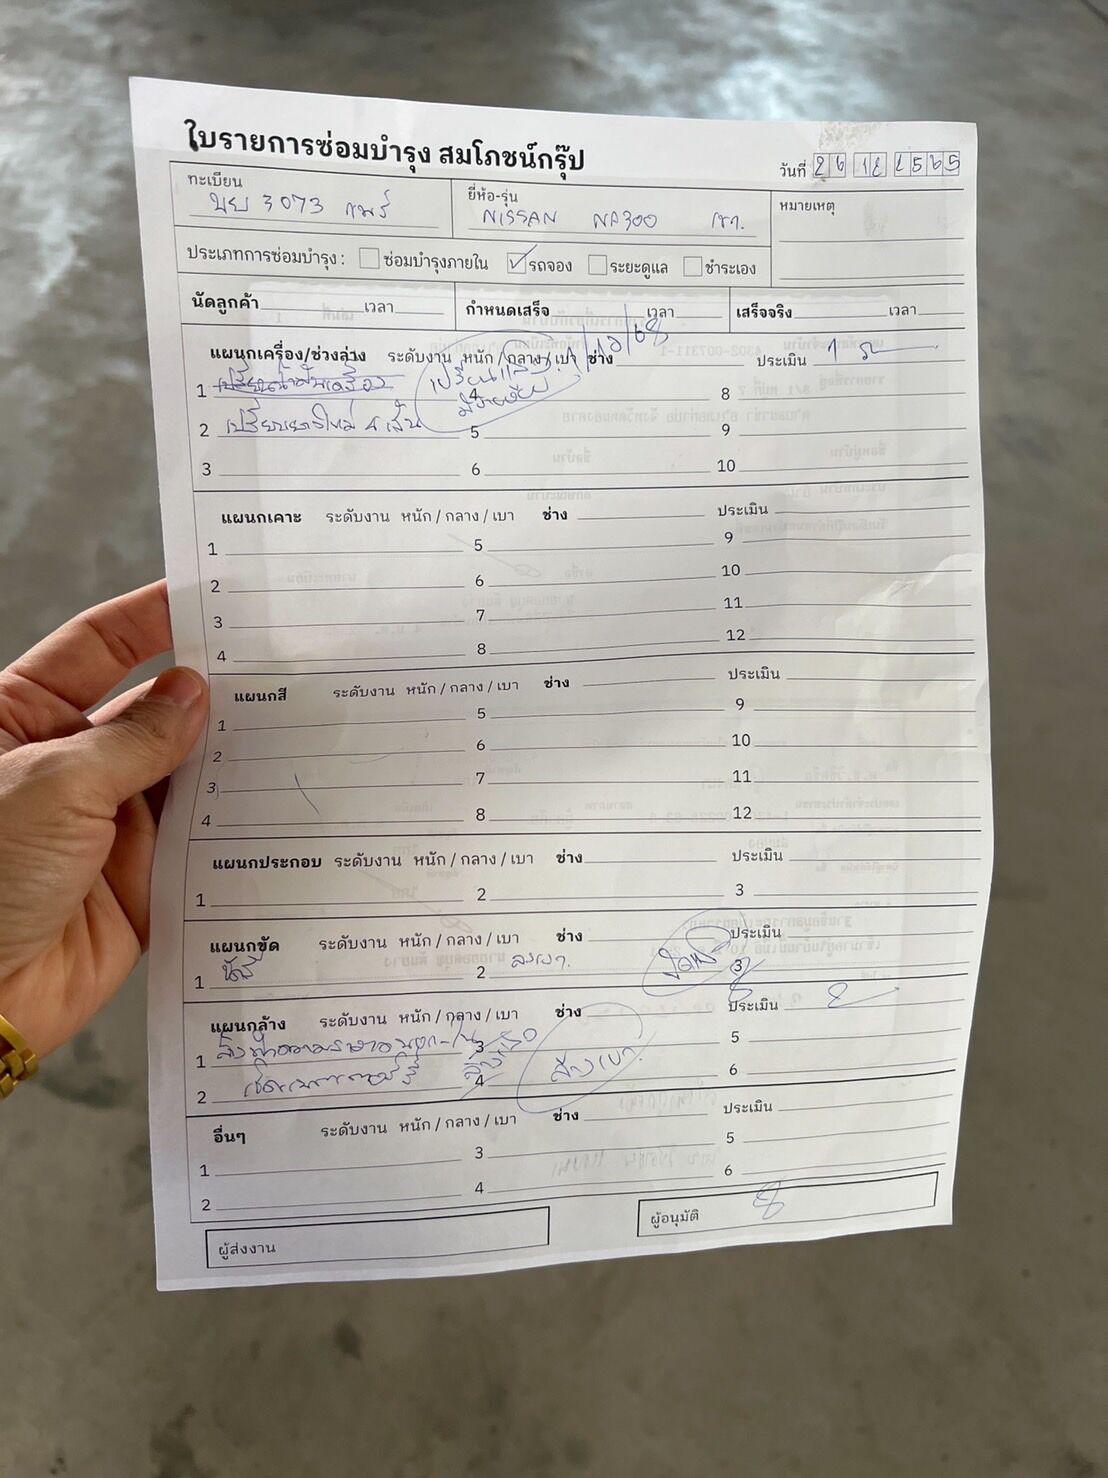 ใบรายการซ่อมบำรุง สมโภชน์กรุ๊ป
วันที่
ทะเบียน ยี่ห้อ-รุ่น หมายเหตุ
3073 NISSAN NP300
ประเภทการซ่อมบำรุง : ซ่อมบำรุงภายใน รถจอง ระยะดูแล ชำระเอง
นัดลูกค้า เวลา กำหนดเสร็จ เวลา เสร็จจริง เวลา
แผนกเครื่อง/ช่วงล่าง ระดับงาน หนัก / กลาง / เบา ช่าง ประเมิน
1 เปลี่ยนน้ำมันเครื่อง 4 8
2 เปลี่ยนยางใหม่ 4 เส้น 5 9
3 6 10
แผนกเคาะ ระดับงาน หนัก / กลาง / เบา ช่าง ประเมิน
1 5 9
2 6 10
3 7 11
4 8 12
แผนกสี ระดับงาน หนัก / กลาง / เบา ช่าง ประเมิน
1 5 9
2 6 10
3 7 11
4 8 12
แผนกประกอบ ระดับงาน หนัก / กลาง / เบา ช่าง ประเมิน
1 2 3
แผนกขัด ระดับงาน หนัก / กลาง / เบา ช่าง ประเมิน
1 2 3
แผนกล้าง ระดับงาน หนัก / กลาง / เบา ช่าง ประเมิน
1 3 5
2 4 ล้างเบา 6
อื่นๆ ระดับงาน หนัก / กลาง / เบา ช่าง ประเมิน
1 3 5
2 4 6
ผู้ส่งงาน ผู้อนุมัติ